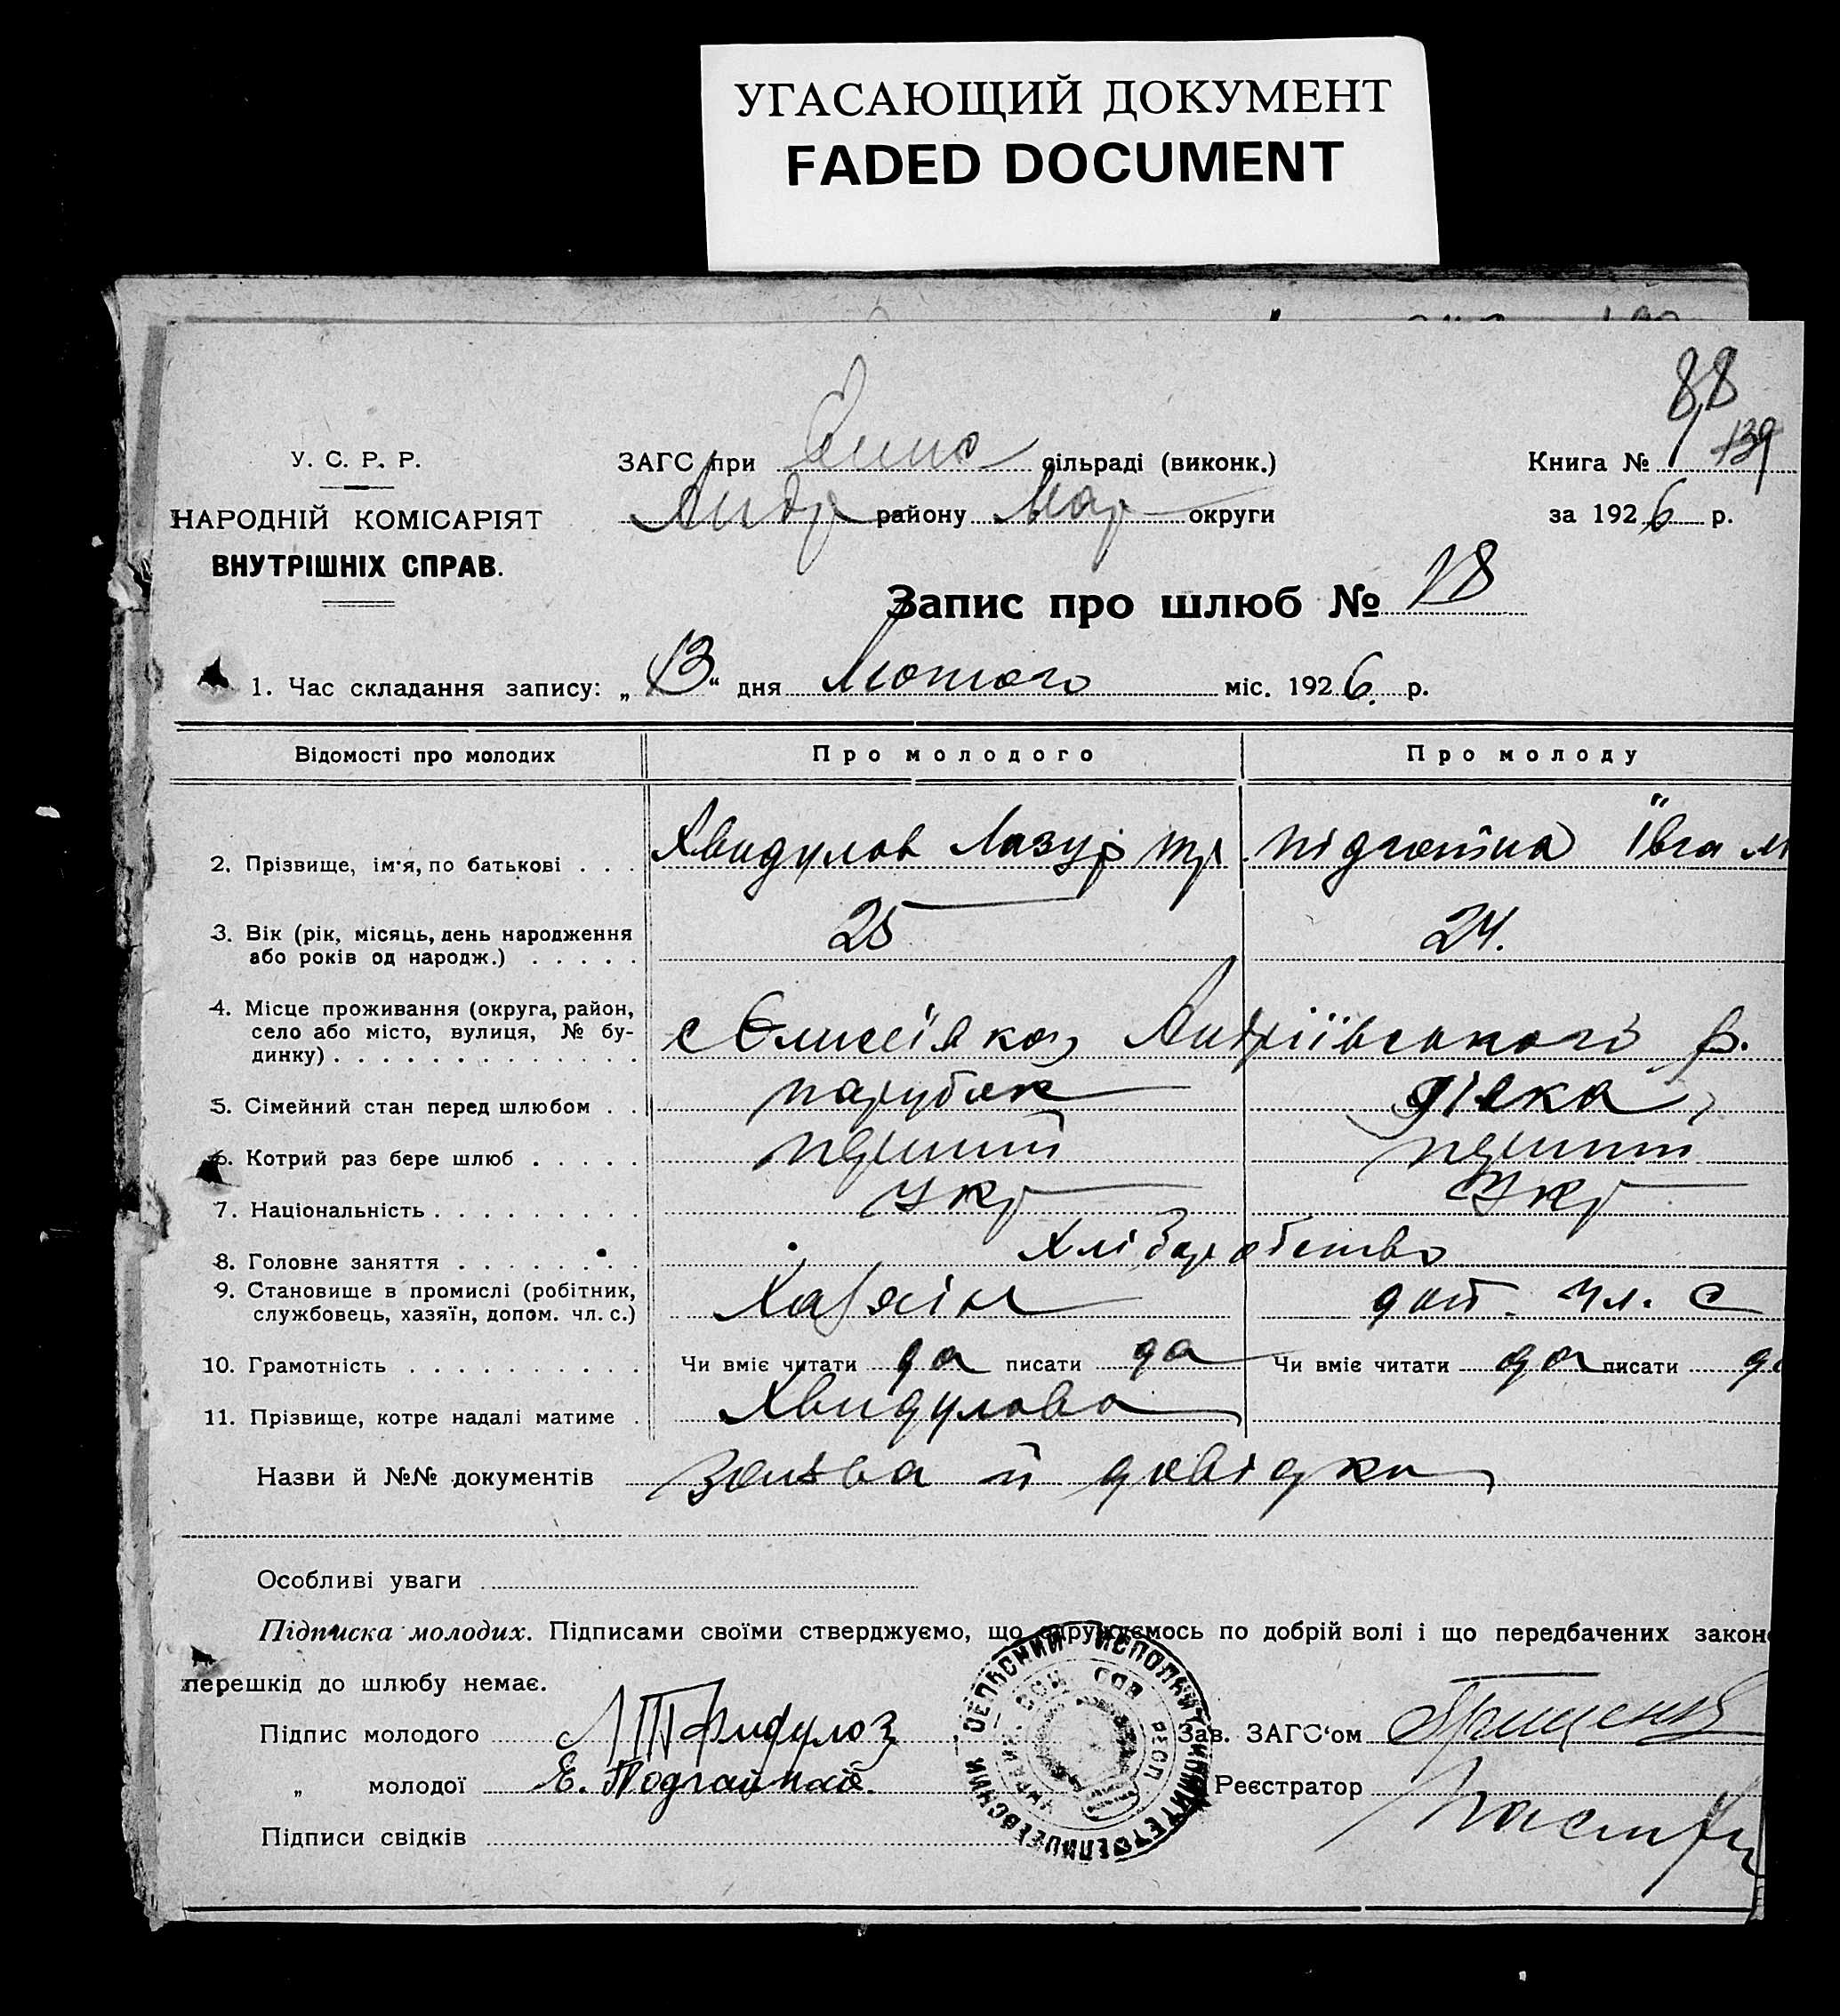 УГАСАЮЩИЙ ДОКУМЕНТ
FADED DOCUMENT
88
139
У. С. Р. Р.
НАРОДНІЙ КОМІСАРІЯТ
ВНУТРІШНІХ СПРАВ.
ЗАГС при Єлис сільраді (виконк.)
Андр району Мар округи
Книга №
за 1926 р.
Запис про шлюб № 18
1. Час складання запису: „13“ дня Лютого міс. 1926 р.
Відомості про молодих Про молодого Про молоду
2. Прізвище, ім'я, по батькові . . . Хвидулов Лазур Тр. підгаїна Івга М
3. Вік (рік, місяць, день народження
або років од народж.) . . . . . 25 24.
4. Місце проживання (округа, район,
село або місто, вулиця, № бу-
динку) . . . . . . . . . . . . . с Єлисеївка, Андріївського р.
5. Сімейний стан перед шлюбом . . парубок дівка
6. Котрий раз бере шлюб . . . . . перший перший
7. Національність . . . . . . . . . Укр Укр
8. Головне заняття . . . . . . . . Хліборобство
9. Становище в промислі (робітник,
службовець, хазяїн, допом. чл. с.) Хазяін доп. чл. с
10. Грамотність . . . . . . . . . . Чи вміє читати да писати да Чи вміє читати да писати да
11. Прізвище, котре надалі матиме . Хвидулова
Назви й №№ документів заява й довідки
Особливі уваги
Підписка молодих. Підписами своїми стверджуємо, що одружуємось по добрій волі і що передбачених закон
перешкід до шлюбу немає.
Підпис молодого ЛТ Фидулов
„ молодої Е. Подгайная.
Підписи свідків
Зав. ЗАГС'ом Грищенко
Реєстратор
СЕЛЬСКИЙ ИСПОЛКОМИТЕТ ЕЛИСЕЕВСКИЙ
УКРАИН. СОЦ. СОВ. РЕСП.